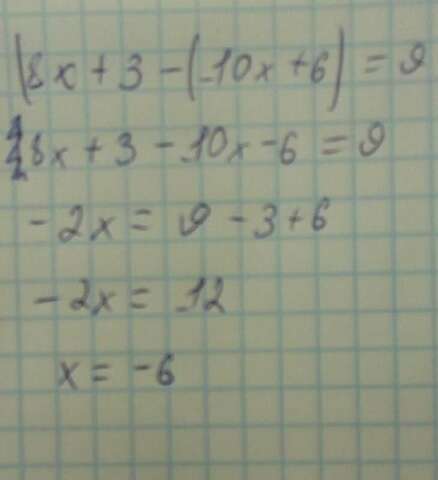 (8x + 3 - (10x + 6) = 9
8x + 3 - 10x - 6 = 9
- 2x = 9 - 3 + 6
- 2x = 12
x = -6